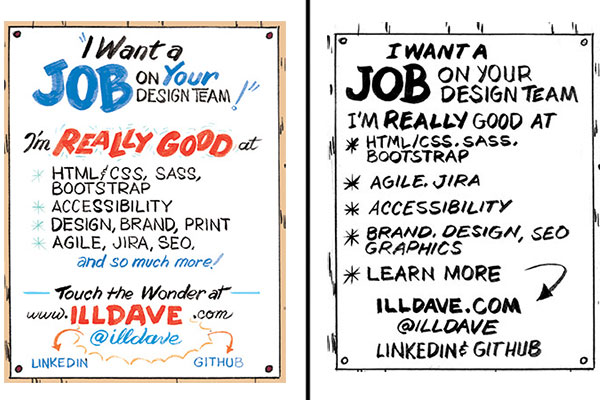 "I Want a
JOB ON Your
DESIGN TEAM!"
I'm REALLY GOOD at
* HTML & CSS, SASS,
BOOTSTRAP
* ACCESSIBILITY
* DESIGN, BRAND, PRINT
* AGILE, JIRA, SEO,
and so much more!
Touch the Wonder at
www.ILLDAVE.com
@illdave
LINKEDIN GITHUB
I WANT A
JOB ON YOUR
DESIGN TEAM
I'M REALLY GOOD AT
* HTML/CSS. SASS.
BOOTSTRAP
* AGILE. JIRA
* ACCESSIBILITY
* BRAND, DESIGN, SEO
GRAPHICS
* LEARN MORE
ILLDAVE.COM
@ILLDAVE
LINKEDIN & GITHUB